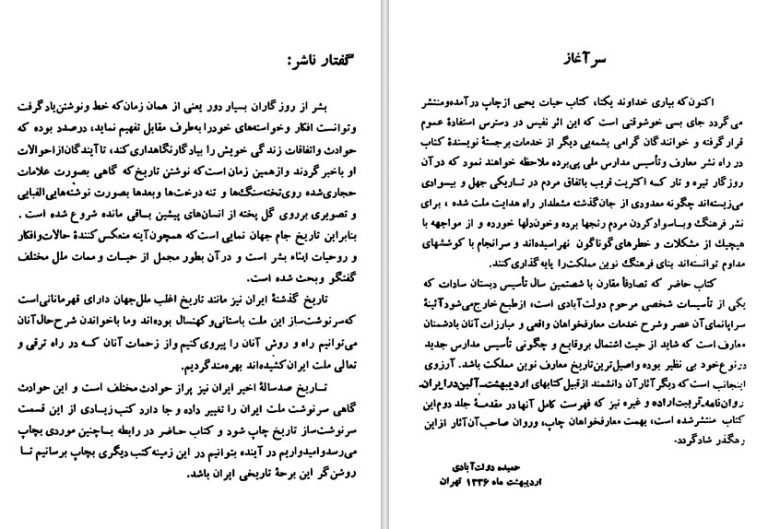 سرآغاز
اکنون‌که بیاری خداوند یکتا، کتاب حیات یحیی ازچاپ درآمده‌ومنتشر
می‌گردد جای بسی خوشوقتی است که این اثر نفیس در دسترس استفادهٔ عموم
قرارگرفته و خوانندگان گرامی بشمه‌یی دیگر از خدمات برجستهٔ نویسندهٔ کتاب
در راه نشر معارف وتأسیس مدارس ملی پی‌برده ملاحظه خواهند نمود که‌درآن
روزگار تیره و تار کـه اکثریت قریب باتفاق مردم در تـاریکی جهل و بیسوادی
می‌زیسته‌اند چگونه معدودی از جان‌گذشته مشعلدار راه هدایت ملت شده ، برای
نشر فرهنگ وباسوادکردن مردم رنجها برده وخون‌دلها خورده و از مواجهه با
هیچیك از مشکلات و خطرهای‌گوناگون نهراسیده‌اند و سرانجام با کوششهای
مداوم توانسته‌اند بنای فرهنگ نوین مملکت‌را پایه‌گذاری‌کنند.
کتاب حاضر که تصادفاً مقارن با شصتمین سال تأسیس دبستان سادات که
یکی از تأسیسات شخصی مرحوم دولت‌آبادی است، ازطبع خارج‌می‌شودآئینهٔ
سراپانمای‌آن عصر وشرح خدمات معارفخواهان واقعی و مبارزات آنان بادشمنان
معارف است‌که شاید از حیث اشتمال بروقایع و چگونگی تأسیس مدارس جدید
درنوع‌خود بی نظیر بوده واصیل‌ترین‌تاریخ معارف نوین مملکت باشد. آرزوی
اینجانب است‌که دیگرآثارآن دانشمند ازقبیل کتابهای اردیبهشت‌ـ‌آئین‌درایران‌ـ
روان‌نامه‌ـ‌تربیت‌اراده و غیره نیز که فهرست کامل آنها در مقدمهٔ جلد دوم‌این
کتاب منتشرشده است، بهمت معارفخواهان چاپ، وروان صاحب‌آن‌آثار ازاین
رهگذر شادگردد.
حمیده دولت‌آبادی
اردیبهشت ماه ۱۳۳۶ تهران
گفتار ناشر:
بشر از روزگاران بسیار دور یعنی از همان زمان‌که خط ونوشتن‌یادگرفت
وتوانست افکار وخواسته‌های خودرابه‌طرف مقابل تفهیم نماید، درصدد بوده که
حوادث واتفاقات زندگی خویش را بیادگارنگاهداری‌کند، تاآیندگان‌ازاحوالات
او باخبرگردند وازهمین زمان‌است‌که نوشتن تاریخ‌که گاهی بصورت علامات
حجاری‌شده روی‌تخته‌سنگ‌ها و تنه درخت‌ها وبعدها بصورت نوشته‌هایی‌الفبایی
و تصویری برروی گل پخته از انسان‌های پیشین بـاقی مانده شروع شده است .
بنابراین تاریخ جام جهان نمایی است‌که همچون‌آینه منعکس‌کنندهٔ حالات‌وافکار
و روحیات ابناء بشر است و درآن بطور مجمل از حیـات و ممات ملل مختلف
گفتگو وبحث شده است.
تاریخ گذشتهٔ ایران نیز مانند تاریخ اغلب ملل‌جهان دارای قهرمانانی‌است
که‌سرنوشت‌ساز این ملت باستانی‌وکهنسال بوده‌اند وما باخواندن شرح‌حال‌آنان
می‌توانیم راه و روش آنان را پیروی‌کنیم واز زحمات آنان کـه در راه ترقی و
تعالی ملت ایران‌کشیده‌اند بهره‌مندگردیم.
تـاریخ صدسالهٔ اخیر ایران نیز پراز حوادث مختلف است و این حوادث
گاهی سرنوشت ملت ایران را تغییر داده و جا دارد کتب زیـادی از این قسمت
سرنوشت‌ساز تاریخ چاپ شود و کتاب حـاضر در رابطه باچنین موردی بچاپ
می‌رسدوامیدواریم درآینده بتوانیم در این زمینه‌کتب دیگری بچاپ برسانیم تـا
روشن‌گر این برحهٔ تاریخی ایران باشد.